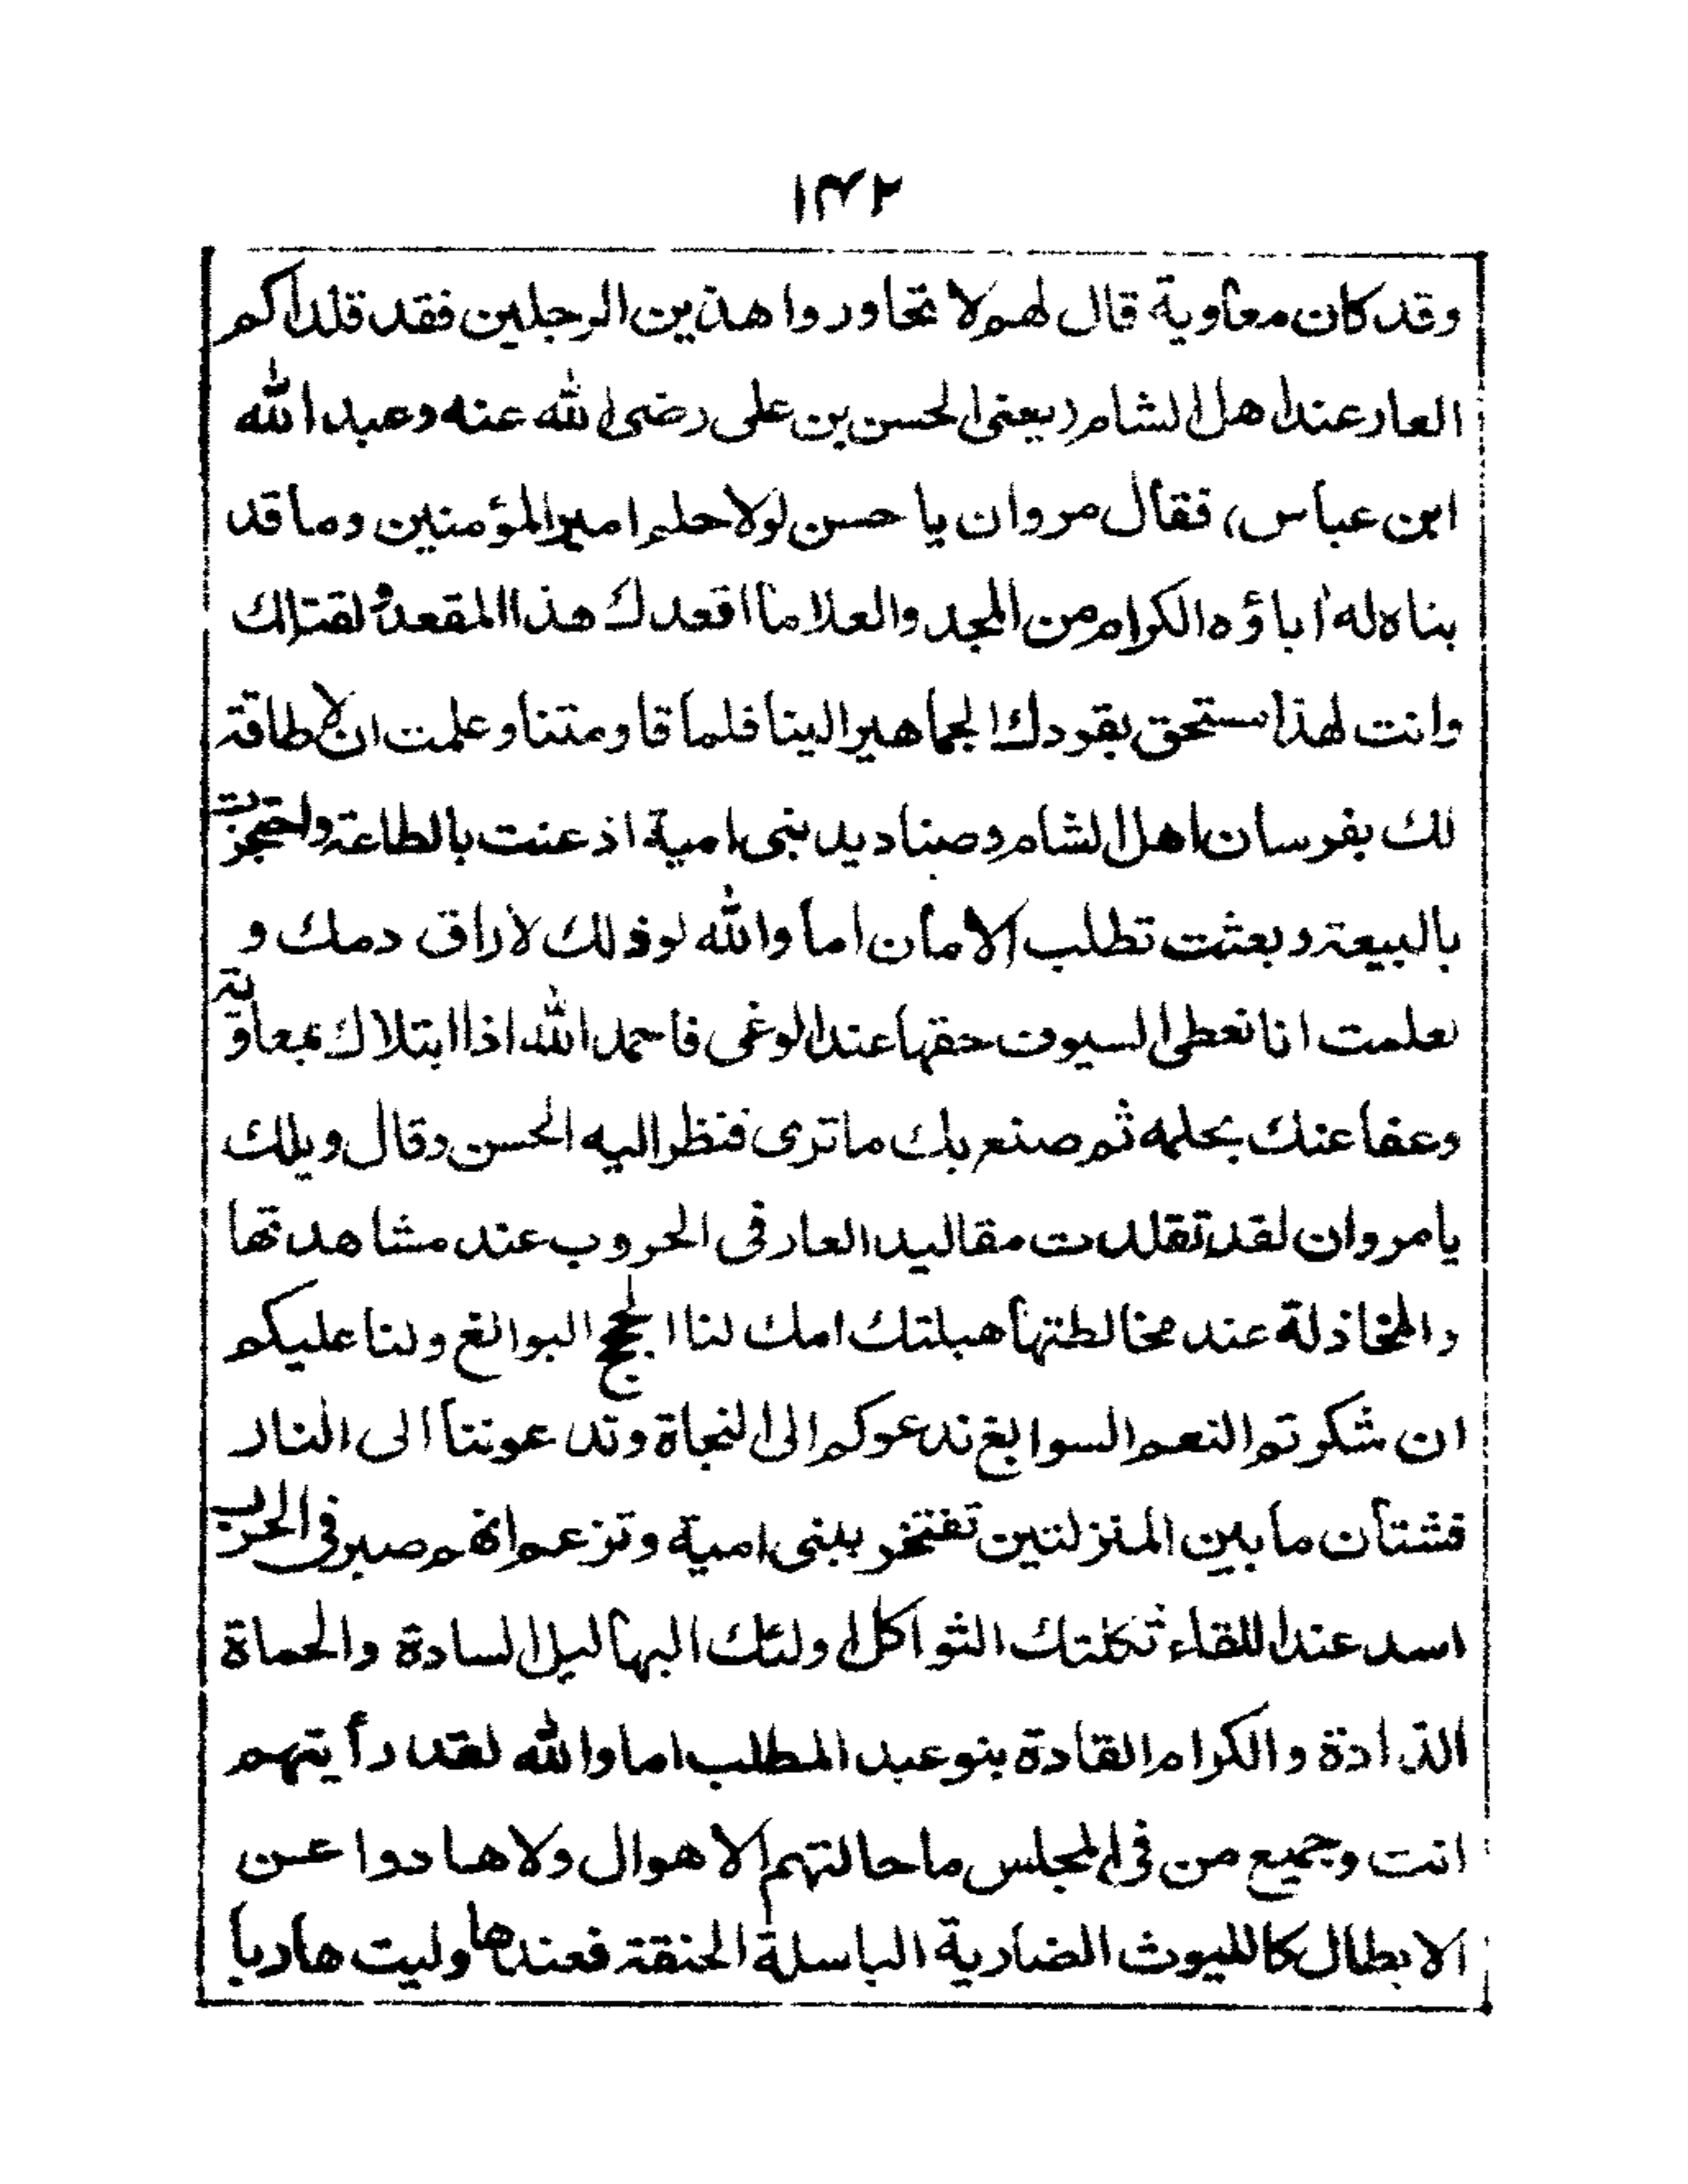 ١٤٢
وقد كان معاوية قال لهم لا تحاوروا هذين الرجلين فقد قلداكم
العار عند اهل الشام (يعنى الحسن بن على رضى الله عنه وعبد الله
ابن عباس) فقال مروان يا حسن لولا حلم امير المؤمنين وما قد
بناه له اباؤه الكرام من المجد والعلا ما اقعدك هذا المقعد ولقتلك
وانت لهذا مستحق بقودك الجماهير الينا فلما قاومتنا وعلمت ان لا طاقة
لك بفرسان اهل الشام وصناديد بنى امية اذعنت بالطاعة واحتجزت
بالبيعة وبعثت تطلب الامان اما والله لو ذلك لاراق دمك و
لعلمت انا نعطى السيوف حقها عند الوغى فاحمد الله اذا ابتلاك بمعاوية
وعفا عنك بحلمه ثم صنع بك ما ترى فنظر اليه الحسن وقال ويلك
يا مروان لقد تقلدت مقاليد العار فى الحروب عند مشاهدتها
والمخاذلة عند مخالطتها هبلتك امك لنا الحجج البوالغ ولنا عليكم
ان شكرتم النعم السوابغ ندعوكم الى النجاة وتدعوننا الى النار
فشتان ما بين المنزلتين تفتخر ببنى امية وتزعم انهم صبر فى الحرب
اسد عند اللقاء ثكلتك الثواكل اولئك البهاليل السادة والحماة
الذادة والكرام القادة بنو عبد المطلب اما والله لقد رأيتهم
انت وجميع من فى المجلس ما حالتهم الاهوال ولا هادوا عن
الابطال كالليوث الضارية الباسلة الحنقة فعندها وليت هاربا